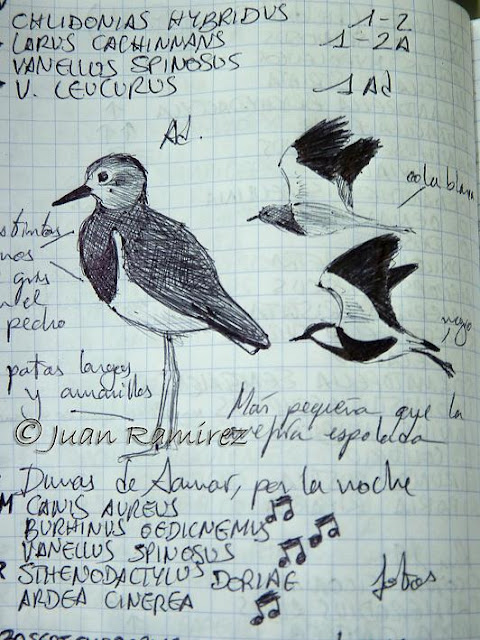 CHLIDONIAS HYBRIDUS 1-2
LARUS CACHINNANS 1-2A
VANELLOS SPINOSUS
V. LEUCURUS 1 Ad
Ad.
cola blan
gris
el
pecho
negro
patas largas
y amarillas
Más pequeña que la
espolada
© Juan Ramírez
Dunas de Samar, por la noche
M CANIS AUREUS
BURHINUS OEDICNEMUS
VANELLUS SPINOSUS
R STHENODACTYLUS DORIAE fotos
ARDEA CINEREA